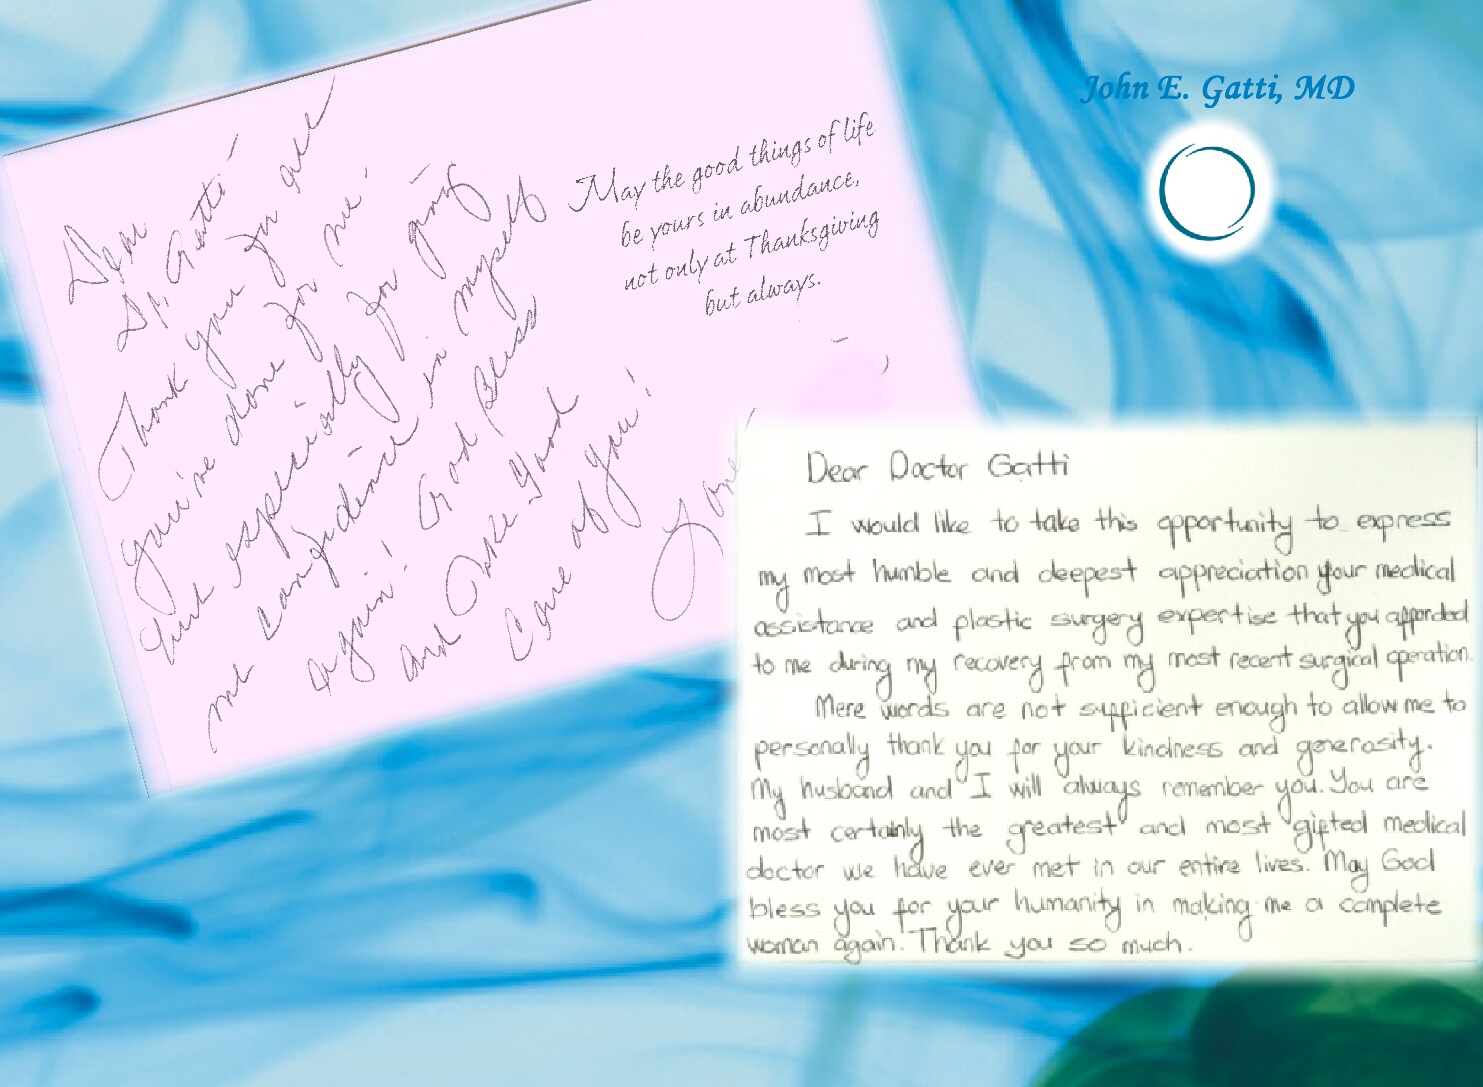 John E. Gatti, MD
Dear
Dr. Gatti -
Thank you for all
you've done for me.
And especially for giving
me confidence in myself
again! God Bless
and Take Good
Care of you!
Love
May the good things of life
be yours in abundance,
not only at Thanksgiving
but always.
Dear Doctor Gatti
I would like to take this opportunity to express
my most humble and deepest appreciation your medical
assistance and plastic surgery expertise that you afforded
to me during my recovery from my most recent surgical operation.
Mere words are not sufficient enough to allow me to
personally thank you for your kindness and generosity.
My husband and I will always remember you. You are
most certainly the greatest and most gifted medical
doctor we have ever met in our entire lives. May God
bless you for your humanity in making me a complete
woman again. Thank you so much.